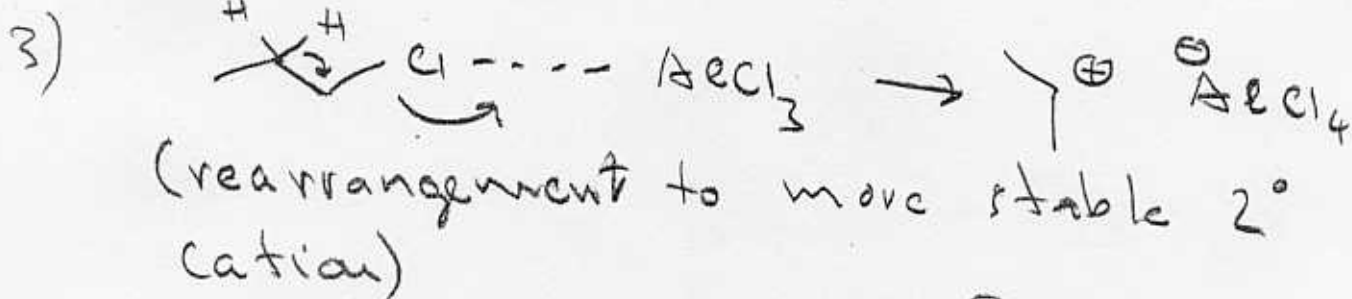 3) H H Cl ---- AlCl₃ → ⊕ ⊖AlCl₄
(rearrangement to more stable 2°
cation)